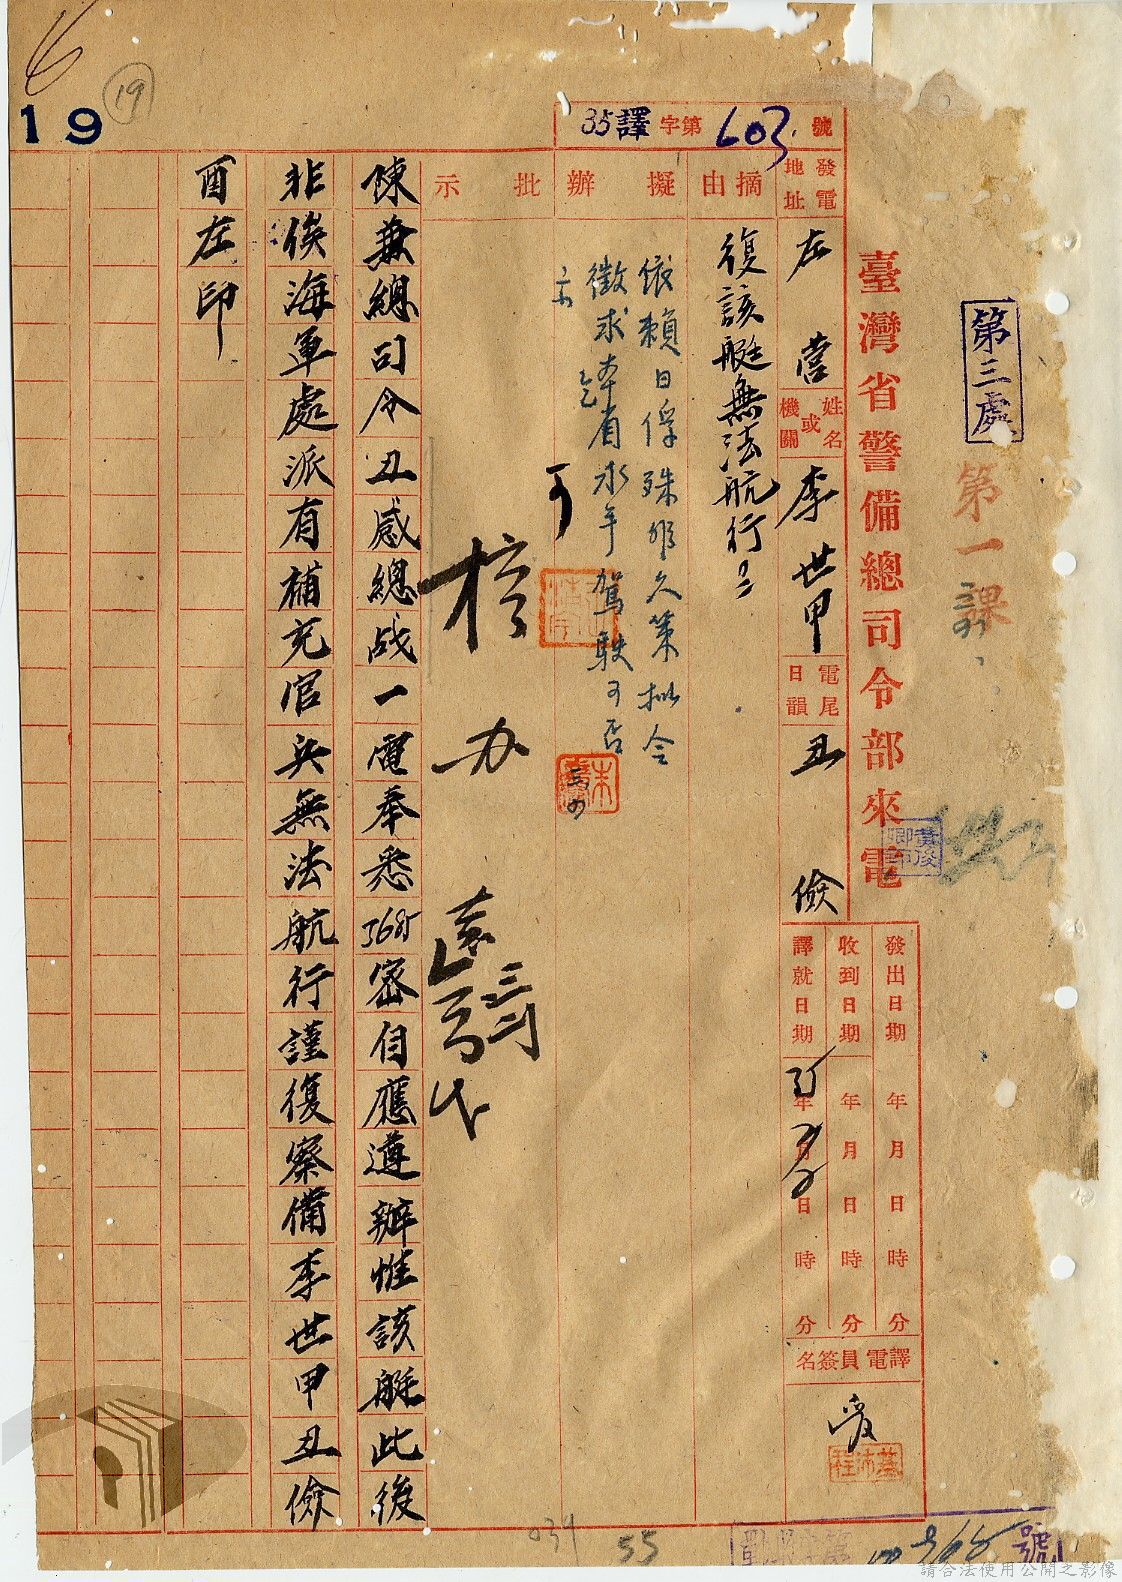 第三處
第一課
臺灣省警備總司令部來電
35譯字第603號
發電地址
左營
姓名或機關
李世甲
電尾日韻
丑儉
發出日期 年 月 日 時 分
收到日期 年 月 日 時 分
譯就日期 年 月 日 時 分
譯電員簽名
摘由
復該艇無法航行由
擬辦
依賴日俘殊非久策擬令
徵求本省水手駕駛可否乞
示
可
批示
核办
陳兼總司令丑感總战一電奉悉3685密自應遵辦惟該艇此後
非俟海軍處派有補充官兵無法航行謹復察備李世甲丑儉
酉左印
19
19
034
55
號
請合法使用公開之影像